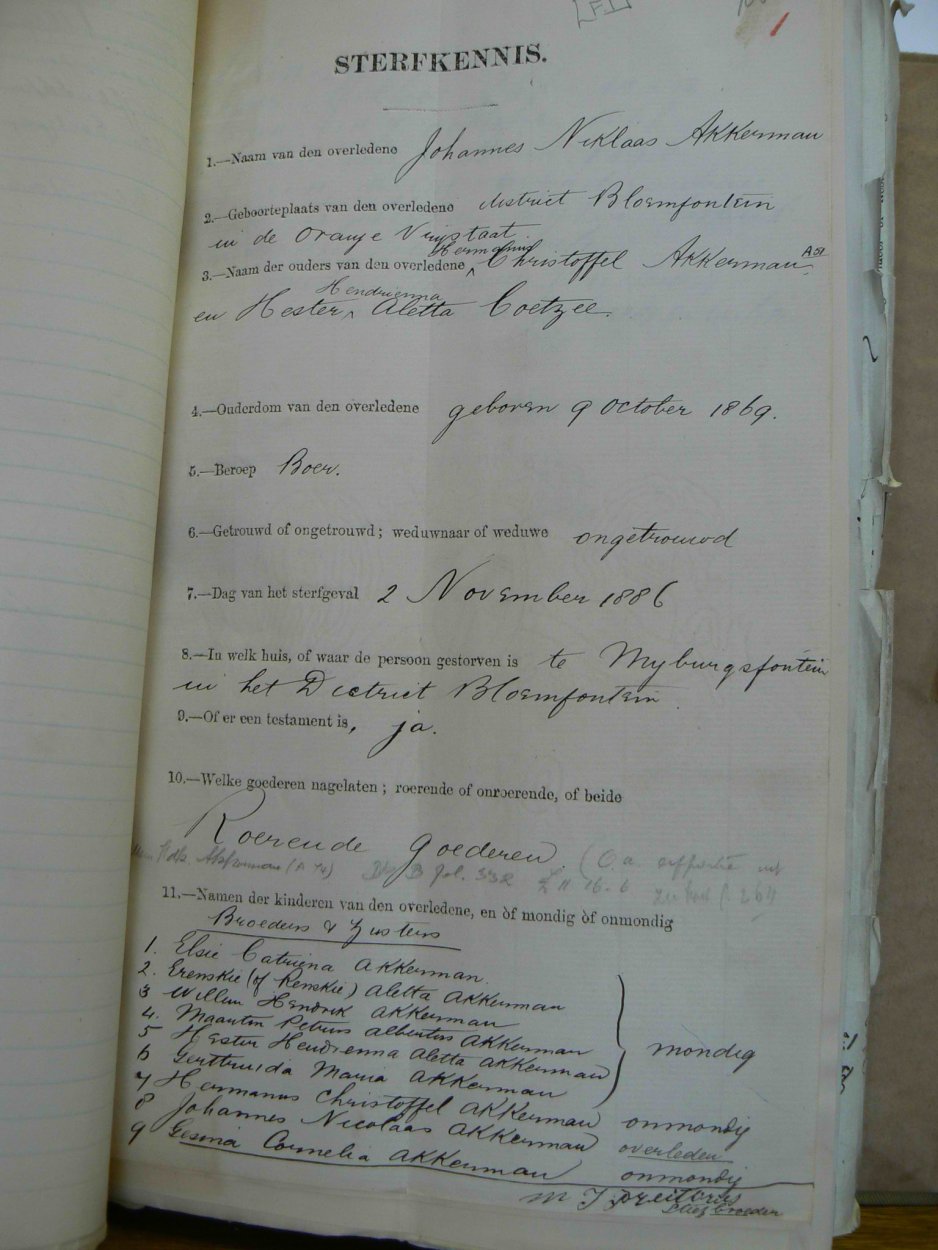 [F.1]
STERFKENNIS.
1.—Naam van den overledene Johannes Niklaas Akkerman
2.—Geboorteplaats van den overledene district Bloemfontein
in de Oranje Vrijstaat.
Hermanus
3.—Naam der ouders van den overledene, Christoffel Akkerman
Hendrienna
en Hester Aletta Coetzee.
4.—Ouderdom van den overledene geboren 9 October 1869.
5.—Beroep Boer.
6.—Getrouwd of ongetrouwd; weduwnaar of weduwe ongetrouwd
7.—Dag van het sterfgeval 2 November 1886
8.—In welk huis, of waar de persoon gestorven is te Myburgsfontein
in het District Bloemfontein
9.—Of er een testament is, ja.
10.—Welke goederen nagelaten; roerende of onroerende, of beide
Roerende Goederen.
Akkerman Fol. 332 £ 11. 16. 6
11.—Namen der kinderen van den overledene, en òf mondig òf onmondig
Broeders & Zusters
1. Elsie Catriena Akkerman
2. Erenskie (of Renskie) Aletta Akkerman
3 Willem Hendrik Akkerman
4. Maarten Petrus Albertus Akkerman mondig
5 Hester Hendrienna Aletta Akkerman
6 Gerttruida Maria Akkerman
7 Hermanus Christoffel Akkerman onmondig
8 Johannes Nicolaas Akkerman overleden
9 Gesina Cornelia Akkerman onmondig